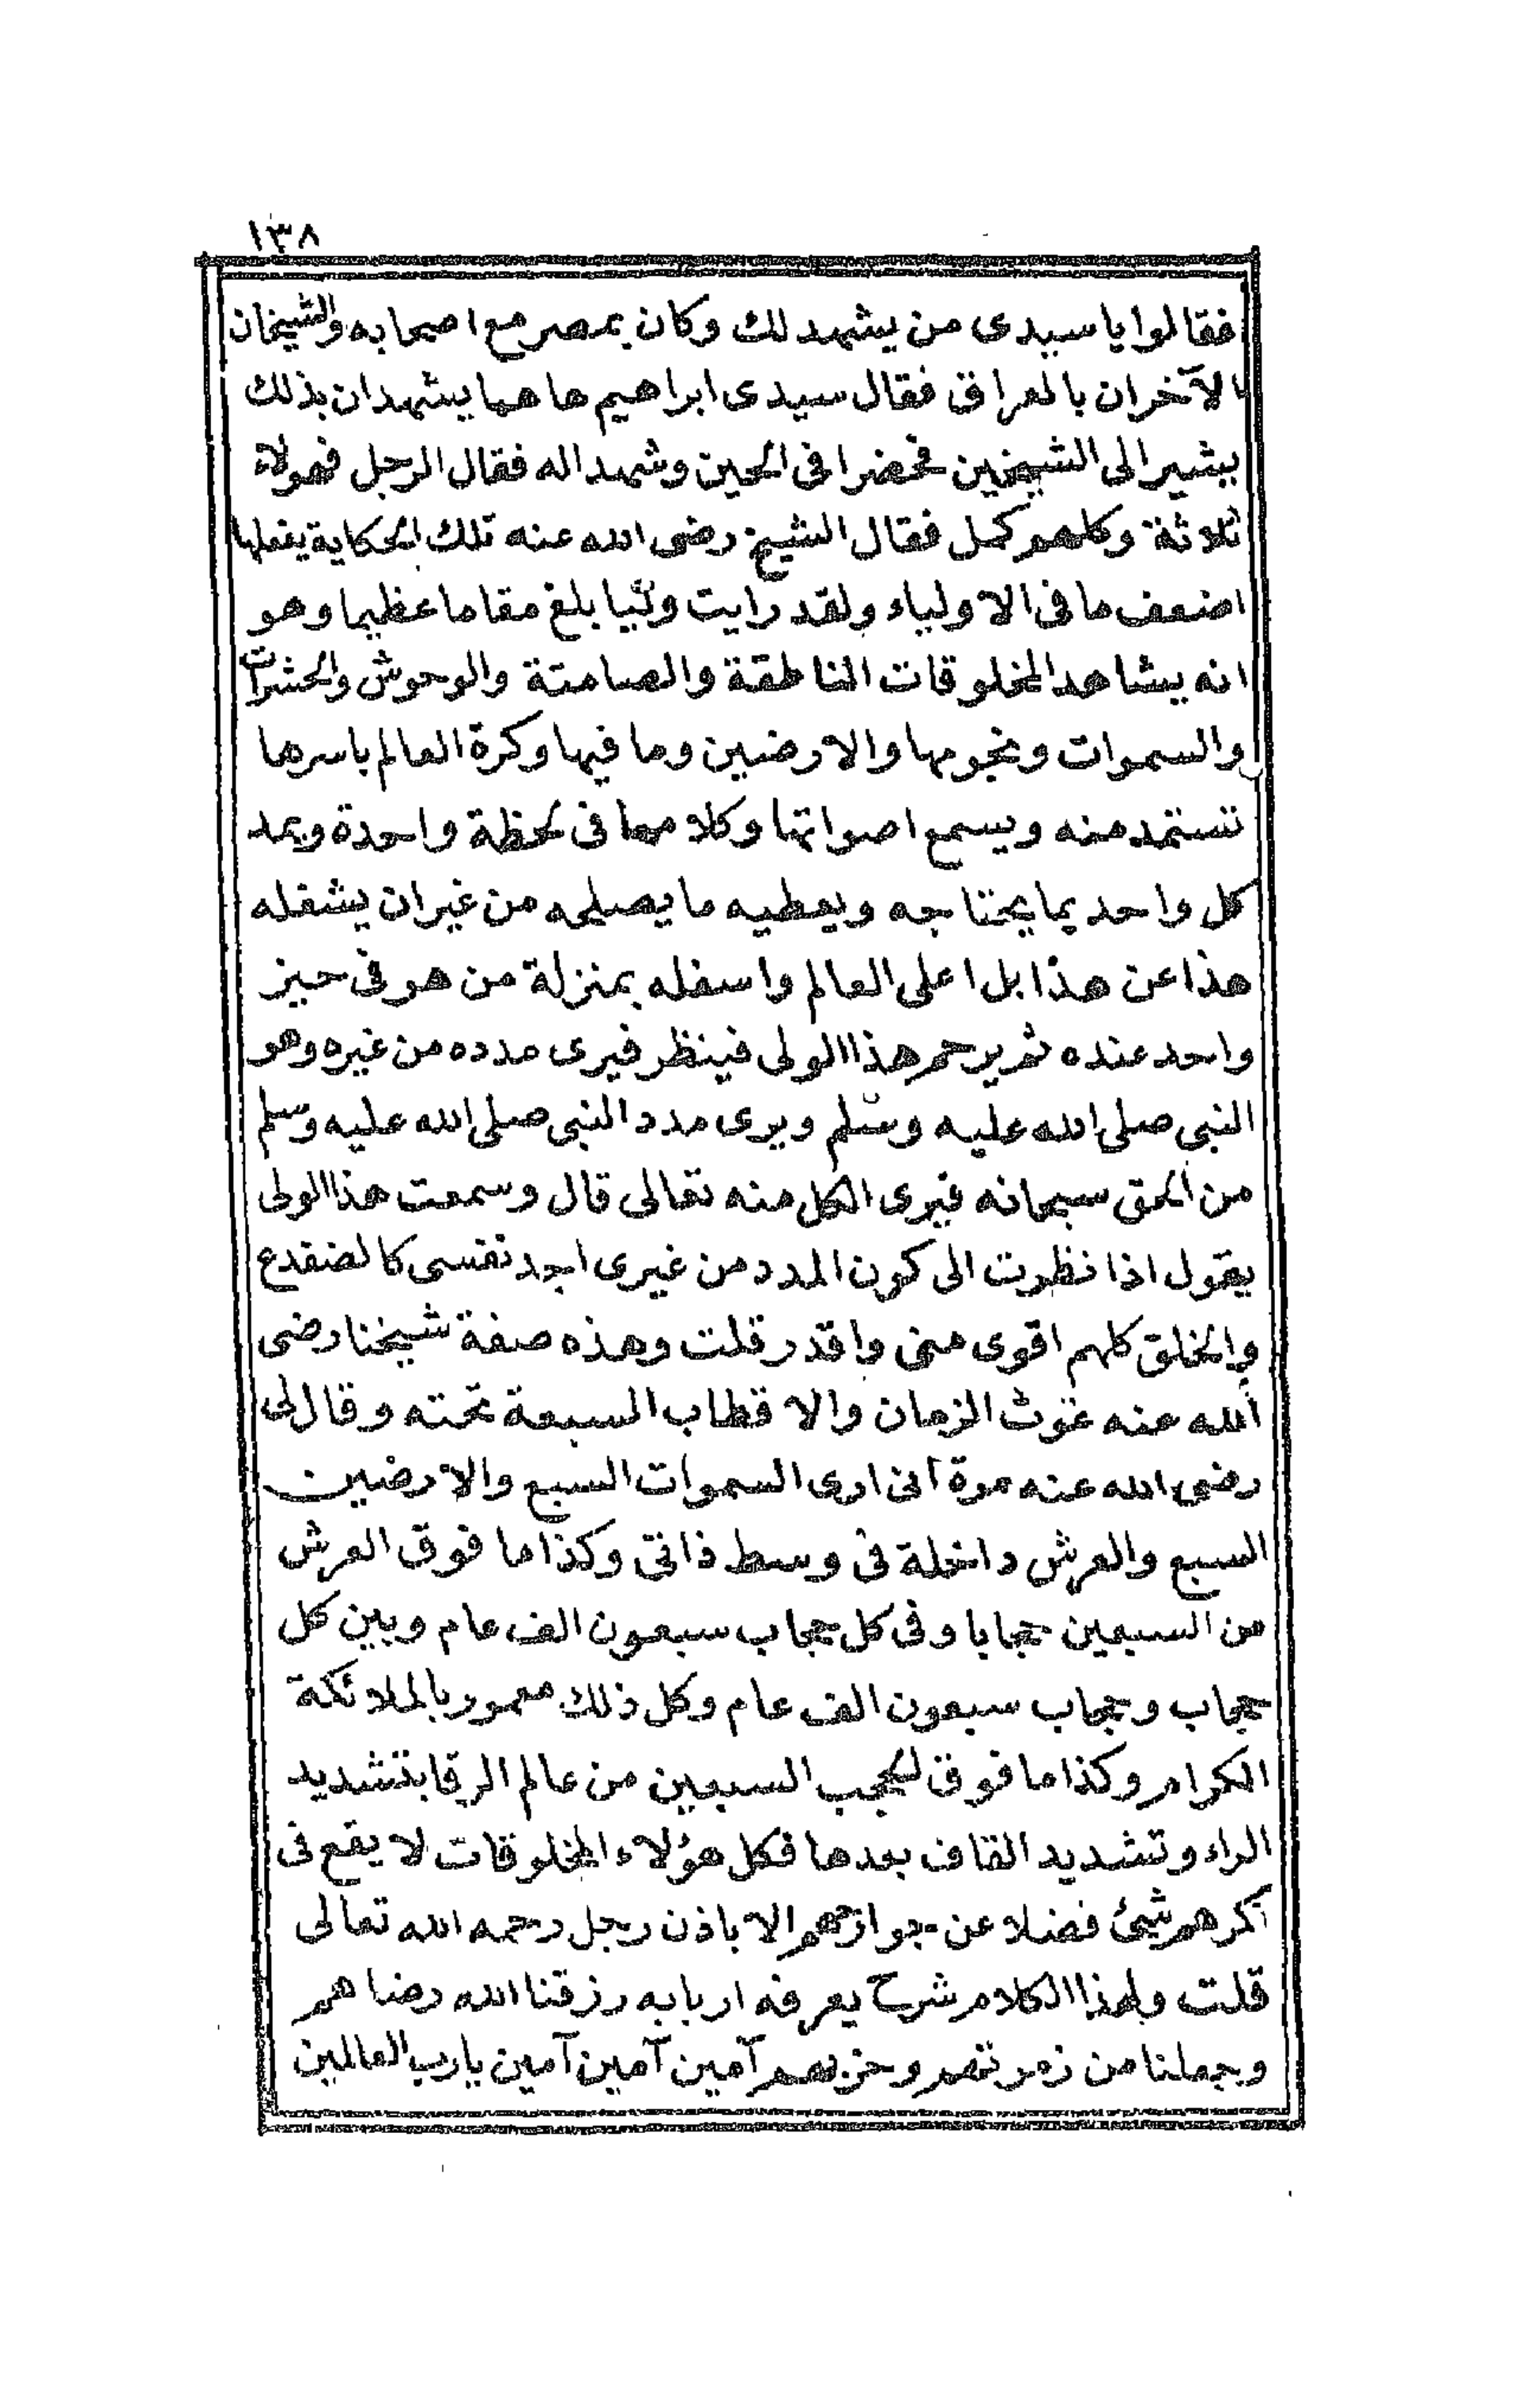 ١٣٨
فقالوا يا سيدى من يشهد لك وكان بمصر مع اصحابه والشيخان
الآخران بالعراق فقال سيدى ابراهيم ها هما يشهدان بذلك
يشير الى الشيخين فحضرا فى الحين وشهدا له فقال الرجل فهولاء
ثلاثة وكلهم كمل فقال الشيخ رضى الله عنه تلك الحكاية يفعلها
اضعف ما فى الاولياء ولقد رايت وليا بلغ مقاما عظيما وهو
انه يشاهد المخلوقات الناطقة والصامتة والوحوش والحشرات
والسموات ونجومها والارضين وما فيها وكرة العالم باسرها
تستمد منه ويسمع اصواتها وكلامها فى لحظة واحدة ويمد
كل واحد بما يحتاجه ويعطيه ما يصلحه من غير ان يشغله
هذا عن هذا بل اعلى العالم واسفله بمنزلة من هو فى حيز
واحد عنده ثم يرحم هذا الولى فينظر فيرى مدده من غيره وهو
النبى صلى الله عليه وسلم ويرى مدد النبى صلى الله عليه وسلم
من الحق سبحانه فيرى الكل منه تعالى قال وسمعت هذا الولى
يقول اذا نظرت الى كون المدد من غيرى اجد نفسى كالضفدع
والخلق كلهم اقوى منى واقدر قلت وهذه صفة شيخنا رضى
الله عنه غوث الزمان والاقطاب السبعة تحته وقال لى
رضى الله عنه مرة انى ارى السموات السبع والارضين
السبع والعرش داخلة فى وسط ذاتى وكذا ما فوق العرش
من السبعين حجابا وفى كل حجاب سبعون الف عام وبين كل
حجاب وحجاب سبعون الف عام وكل ذلك معمور بالملائكة
الكرام وكذا ما فوق الحجب السبعين من عالم الرقا بتشديد
الراء وتشديد القاف بعدها فكل هؤلاء المخلوقات لا يقع فى
فكرهم شئ فضلا عن جوارحهم الا باذن رجل رحمه الله تعالى
قلت ولهذا الكلام شرح يعرفه اربابه رزقنا الله رضاهم
وجعلنا من زمرتهم وحزبهم آمين آمين آمين يا رب العالمين